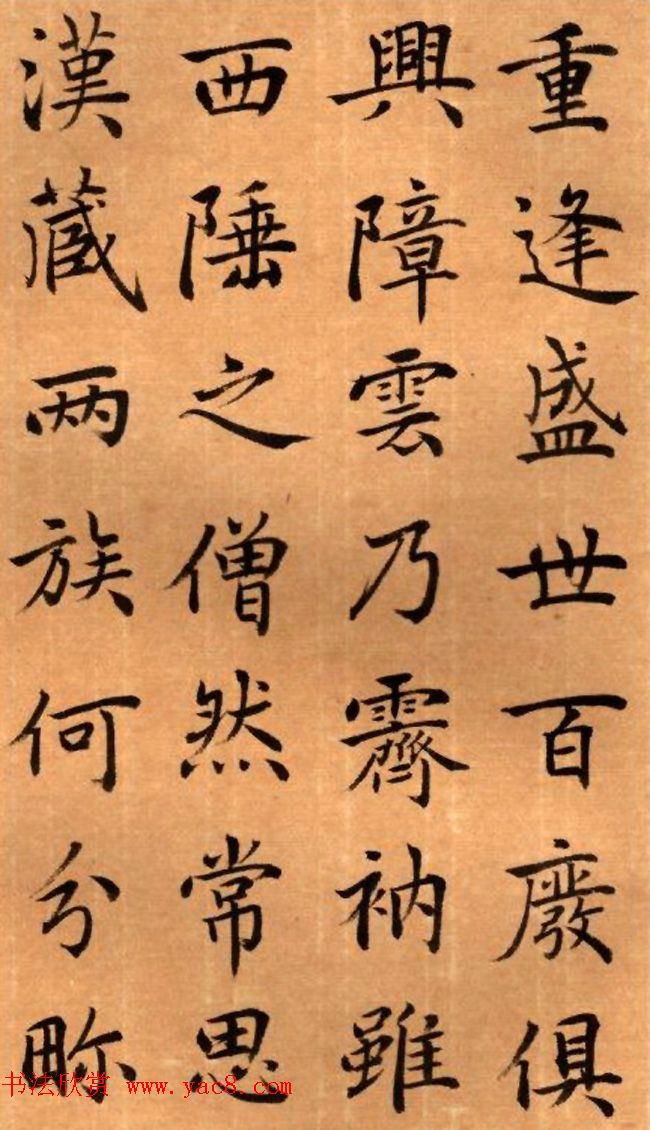 重逢盛世百廢俱
興障雲乃霽衲雖
西陲之僧然常思
漢蔵两族何分畛
书法欣赏 www.yac8.com